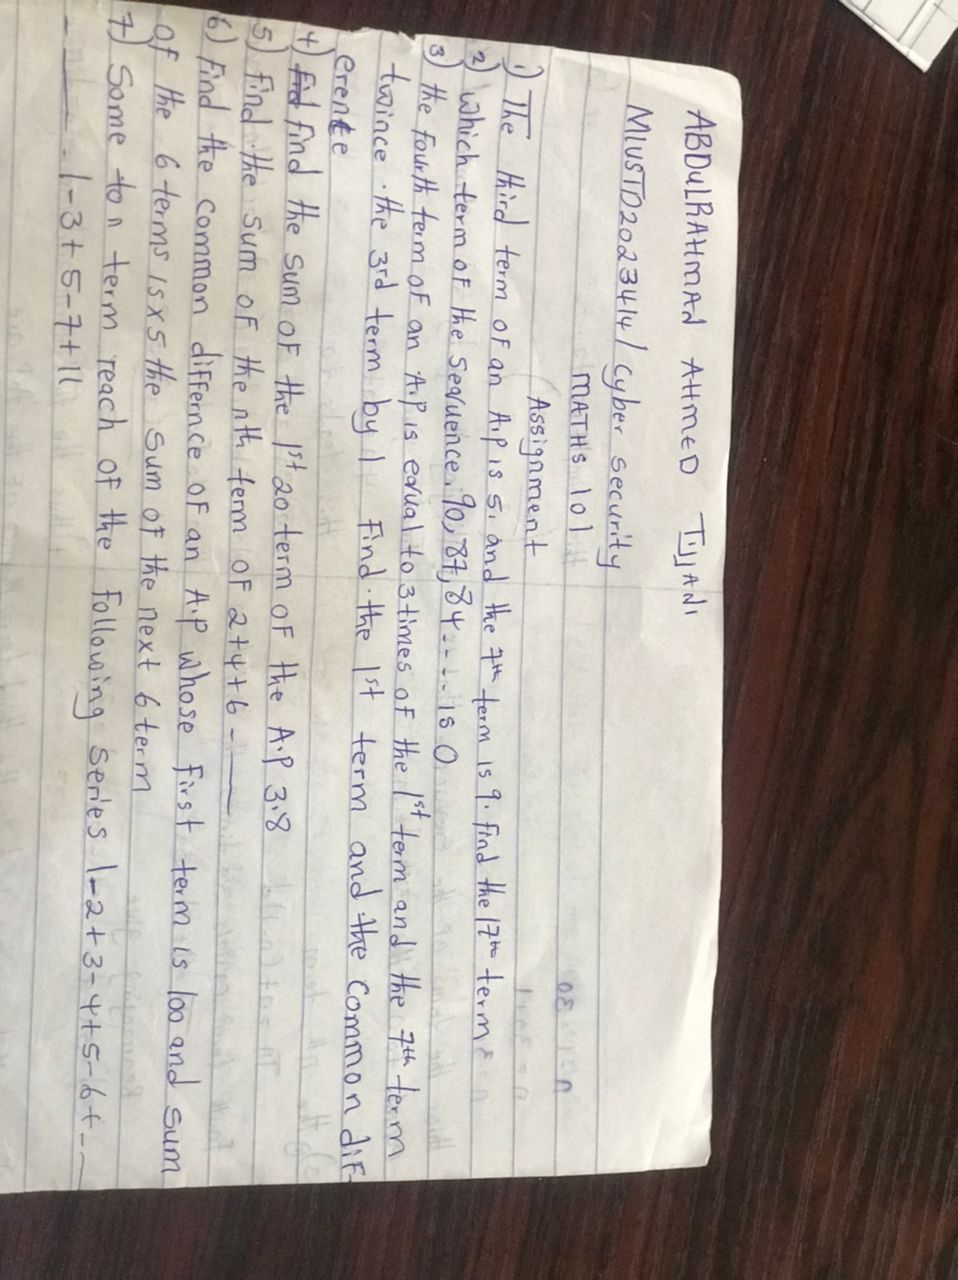 ABDULRAHMAD AHMED TIJJANI
MIUSTD2023414/ cyber security
MATHS 101
Assignment
1) The third term of an A.P is 5. and the 7th term is 9. find the 17th term
2) which term of the Sequence. 90, 87, 84 ..... is 0
3) the fourth term of an A.P is equal to 3 times of the 1st term and the 7th term
twince the 3rd term by 1 Find the 1st term and the common dif-
erence
4) find the sum of the 1st 20 term of the A.P 3.8
5) find the sum of the nth term of 2+4+6 - ___
6) Find the common differnce of an A.P whose first term is 100 and sum
of the 6 terms is x5 the sum of the next 6 term
7) Some to n term reach of the following series 1-2+3-4+5-6+- __
- ____ . 1-3+5-7+11